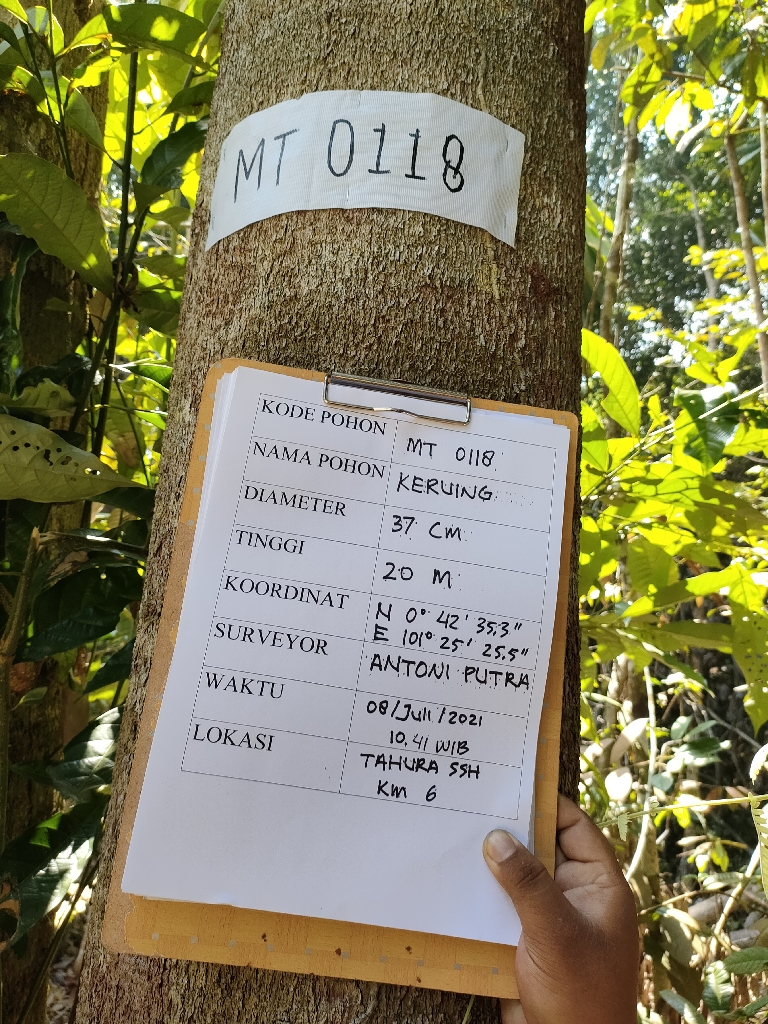 MT 0118
KODE POHON MT 0118
NAMA POHON KERUING
DIAMETER 37 CM
TINGGI 20 M
KOORDINAT N 0° 42' 35.3"
E 101° 25' 25.5"
SURVEYOR ANTONI PUTRA
WAKTU 08/Juli/2021
10.41 WIB
LOKASI TAHURA SSH
KM 6